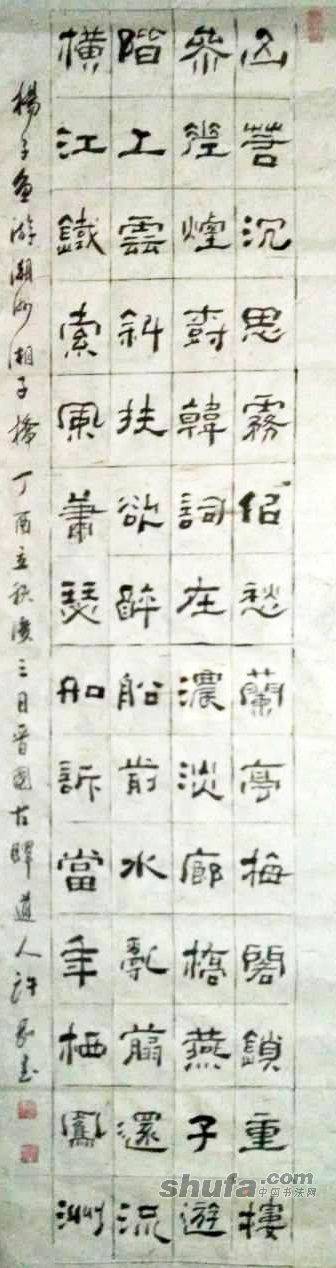 沉思霧侶愁蘭亭梅閣鎖重樓
參徑煙封韓詞在濃淡廊橋燕子遊
階上雲斜扶欲醉船前水亂翦還流
橫江鐵索風蕭瑟如訴當年栖鳳洲
楊子魚游潮州湘子橋 丁酉立秋後三日晉國古驛道人許書
shufa.com
中国书法网